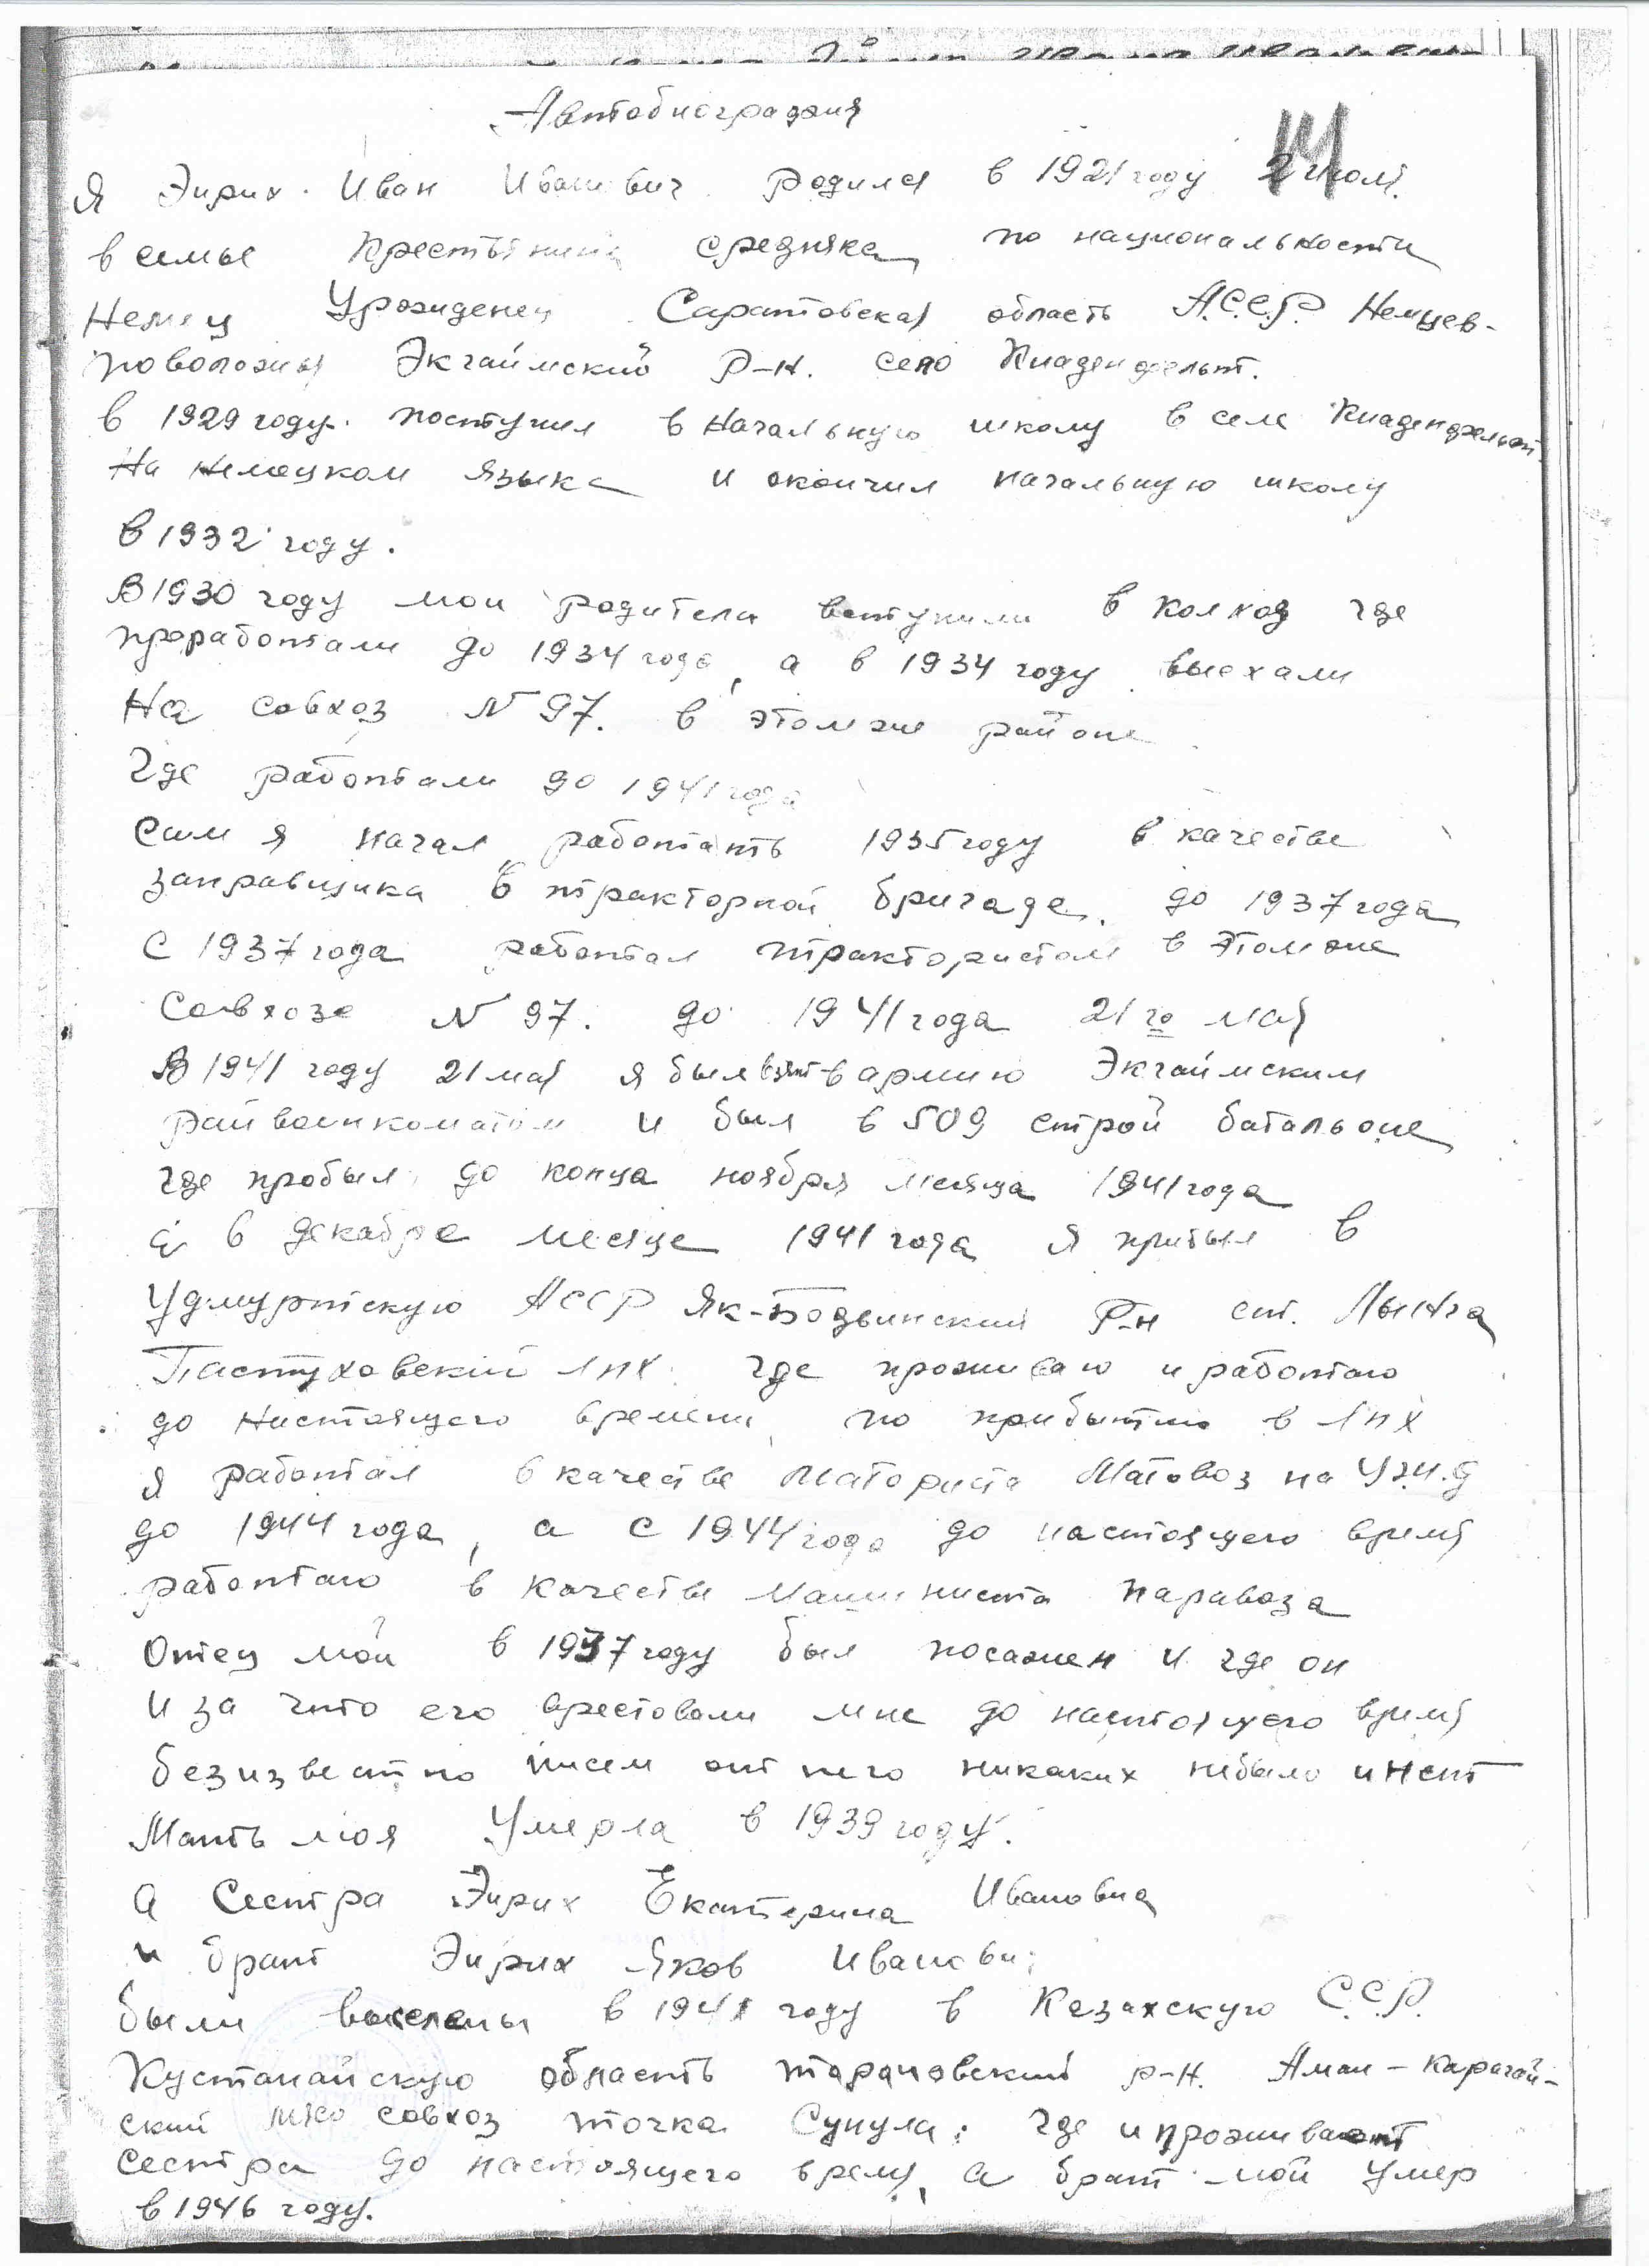 Автобиография
Я Эирих Иван Иванович родился в 1921 году 2 июля
в семье крестьянина средняка, по национальности
Немец Урожденец Саратовская область А.С.С.Р. Немцев-
поволожия Экгаймский Р-н. село Кнаденфельт.
в 1929 году. поступил в Начальную школу в селе Кнаденфельт.
На немецком языке и окончил начальную школу
в 1932 году.
В 1930 году мои родители вступили в колхоз где
проработали до 1934 года, а в 1934 году выехали
На совхоз N 97. в этом же районе
Где работали до 1941 года
Сам я начал работать 1935 году в качестве
заправщика в тракторной бригаде. до 1937 года
С 1937 года работал трактористом в этом же
Совхозе N 97. до 1941 года 21 го мая
В 1941 году 21 мая я был взят в армию Экгаймским
райвоинкоматом и был в 509 строй батальоне
где пробыл до конца ноября месяца 1941 года
а в декабре месяце 1941 года я прибыл в
Удмуртскую АССР Як-Бодьинский Р-н ст. Лынга
Пастуховский лпх где проживаю и работаю
до настоящего времени, по прибытию в лпх
я работал в качестве маториста Матовоз на У.ж.д
до 1944 года, а с 1944 года до настоящего время
работаю в качестве машиниста паравоза
Отец мой в 1937 году был посажен и где он
и за что его арестовали мне до настоящего время
безизвестно писем от него никаких небыло и нет
Мать моя Умерла в 1939 году.
а Сестра Эирих Екатерина Ивановна
и брат Эирих Яков Иванови
были выселены в 1941 году в Казахскую С.С.Р.
Кустанайскую область тарановский р-н. Аман-Карагай-
ский мясо совхоз точка Сунула: где и проживает
сестра до настоящего время, а брат мой умер
в 1946 году.